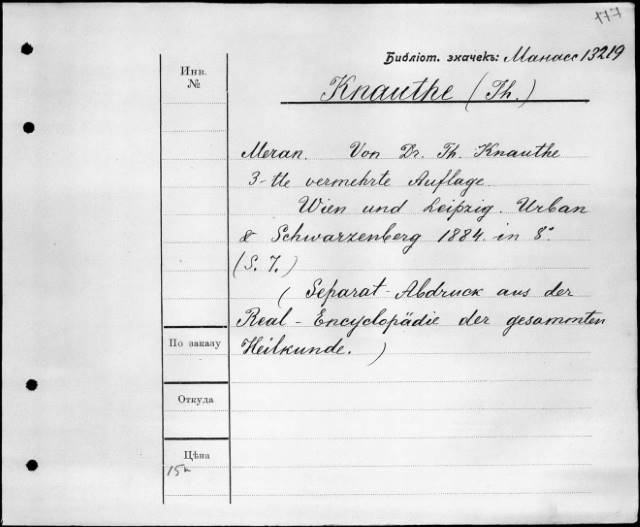 177
Библіот. значекъ: Манасс 13219
Инв.
№
Knauthe (Th.)
Meran. Von Dr. Th. Knauthe
3-tte vermehrte Auflage.
Wien und Leipzig. Urban
& Schwarzenberg 1884. in 8°
(S. 7.)
( Separat-Abdruck aus der
Real-Encyclopädie der gesammten
Heilkunde. )
По заказу
Откуда
Цѣна